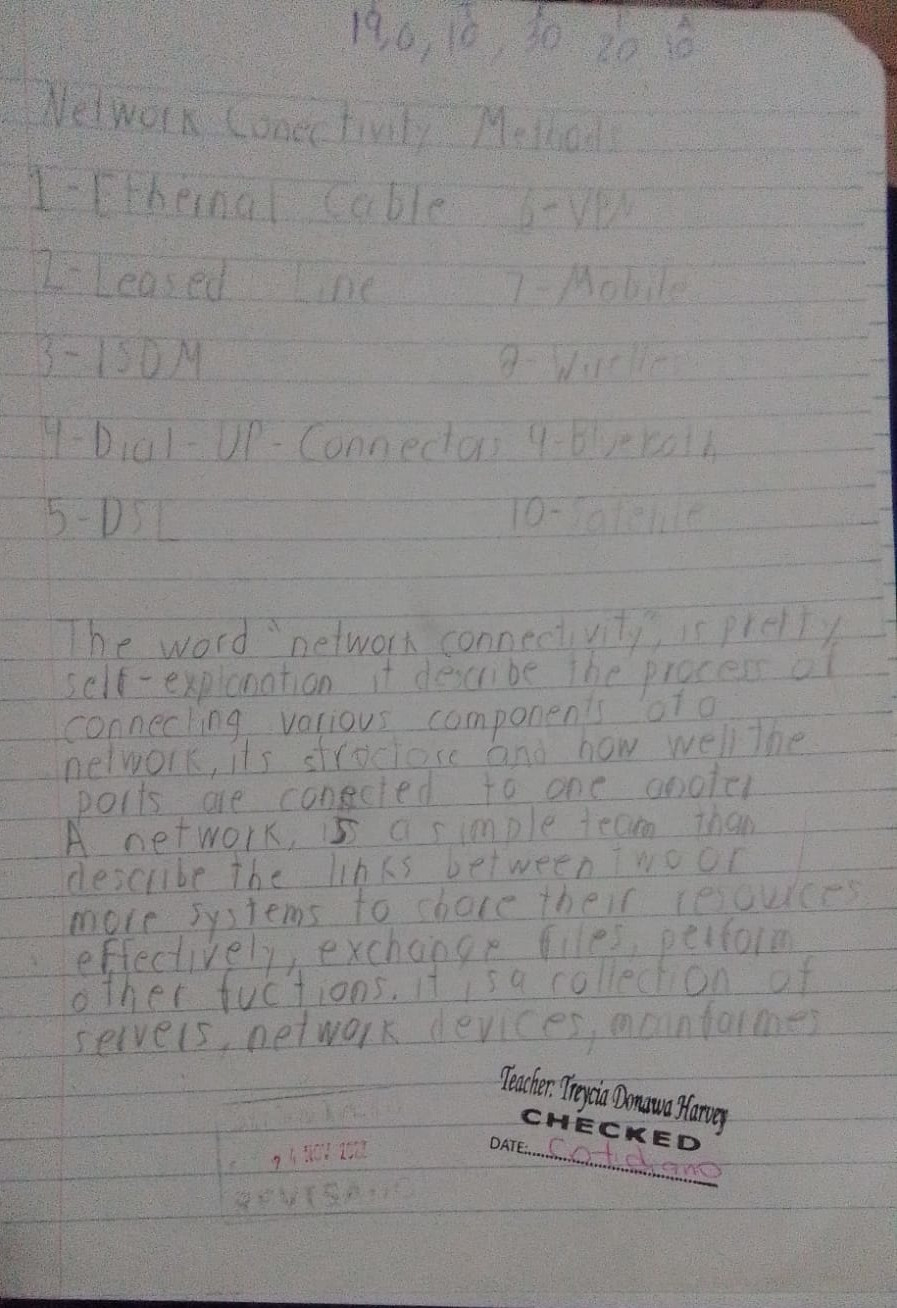 19,0, 10, 30 20 10
Network Conectivity Methods
1-Ethernal Cable 6-VPN
2-Leased Line 7-Mobile
3-ISDM 8-Wireller
4-Dial-UP-Connectas 9-Bluetoth
5-DSL 10-Satelite
The word "network connectivity", is pretty
self-explanation it describe the process of
connecting various components of a
network, its structore and how well the
ports are conected to one anoter
A network, is a simple team than
describe the links between two or
more systems to share their resources
effectively, exchange files, perform
other fuctions. it is a collection of
servers, network devices, mainformes
Teacher: Treycia Donawa Harvey
CHECKED
DATE: Cotidiano
24 NOV 2022
REVISADO